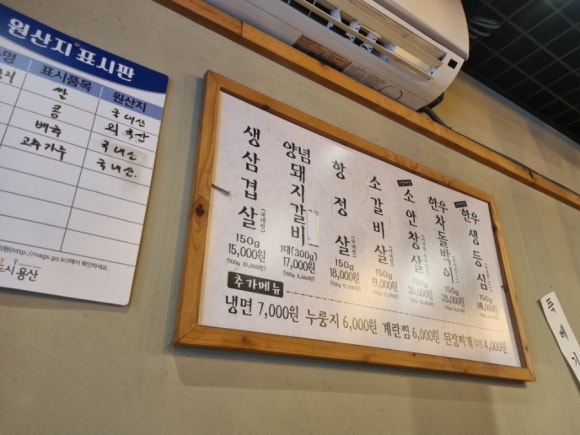 원산지 표시판
표시품목 원산지
쌀 국내산
콩 외국산
배추 국내산
고추가루 국내산
생삼겹살
150g
15,000원
(100g 10,000원)
양념돼지갈비
1대(300g)
17,000원
항정살
150g
18,000원
소갈비살
150g
19,000원
소안창살
150g
30,000원
한우차돌박이
150g
28,000원
한우생등심
150g
추가메뉴
냉면 7,000원 누룽지 6,000원 계란찜 6,000원 된장찌개 4,000원